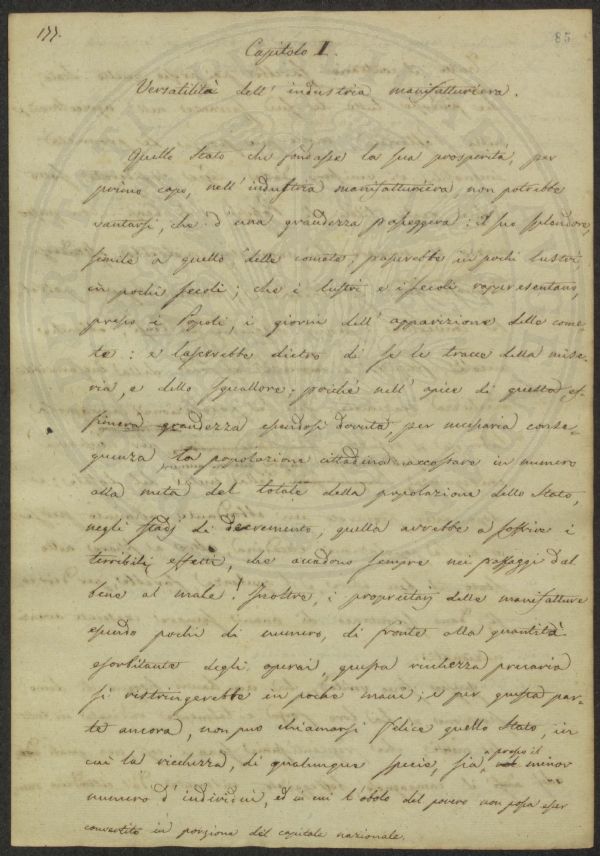 177. 85
Capitolo I.
Versatilità dell' industria manifatturiera.
Quello Stato che fondasse la sua prosperità, per
primo capo, nell' industria manifatturiera non potrebbe
vantarsi, che d' una grandezza passeggera: il suo splendore,
simile a quello delle comete, passerebbe in pochi lustri
in pochi secoli; che i lustri e i secoli rappresentano,
presso i Popoli, i giorni dell' apparizione delle come-
te: e lascerebbe dietro di se le tracce della mise-
ria, e dello squallore; poiché nell' apice di questa ef-
fimera grandezza essendosi dovuta, per necessaria conse-
guenza la popolazione cittadina accostare in numero
alla metà del totale della popolazione dello Stato,
negli stadj di decremento, quella avrebbe a soffrire i
terribili effetti, che accadono sempre nei passaggi dal
bene al male! Inoltre, i proprietarj delle manifatture
essendo pochi di numero, di fronte alla quantità
esorbitante degli operai, questa ricchezza precaria
si ristringerebbe in poche mani; e per questa par-
te ancora, non può chiamarsi felice quello Stato, in
cui la ricchezza, di qualunque specie, sia presso il minor
numero d' individui, ed in cui l' obolo del povero non possa esser
convertito in porzione del capitale nazionale.